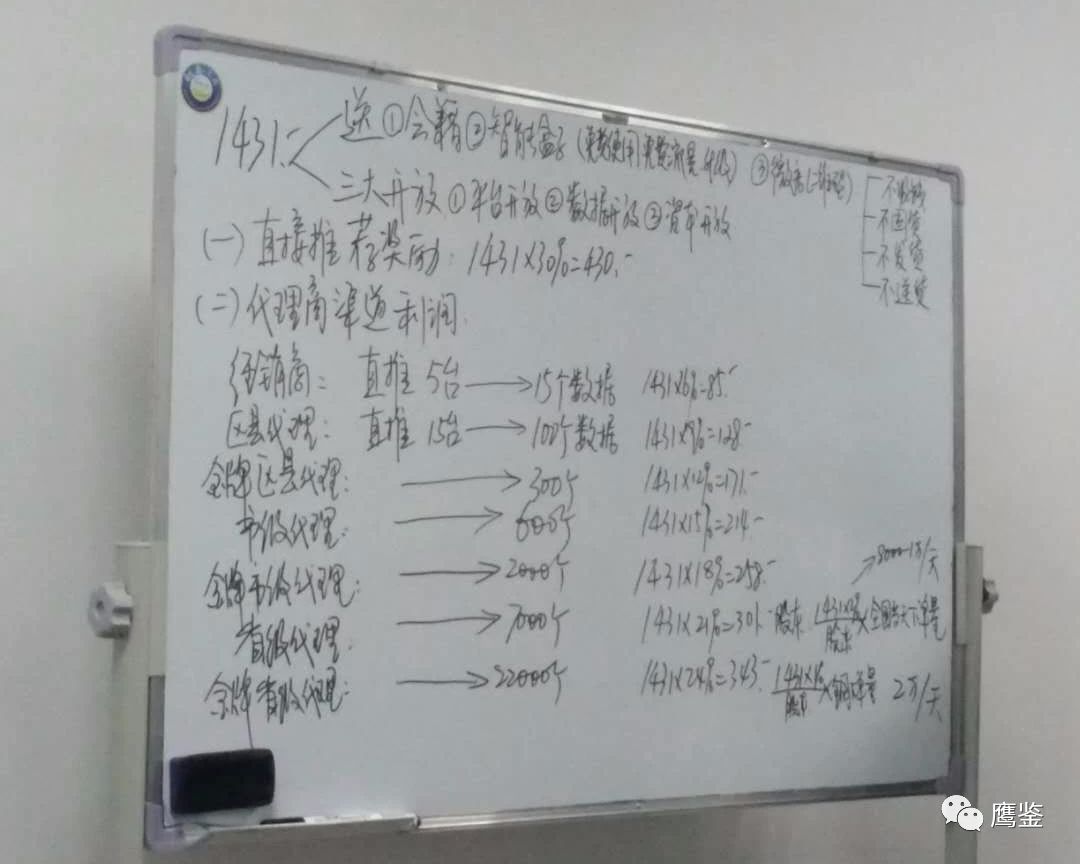 1431.- 送 ①会籍 ②智能盒子 (免费使用 免费流量 升级) ③微商
三大开放 ①平台开放 ②数据开放 ③资本开放
不囤货
不发货
(一) 直接推荐奖励: 1431×30%=430.-
(二) 代理商渠道利润.
经销商: 直推 5台 → 15个数据 1431×6%=85.-
区县代理: 直推 15台 → 100个数据 1431×9%=128.-
金牌区县代理: → 300个 1431×12%=171.-
市级代理: → 600个 1431×15%=214.-
金牌市级代理: → 2000个 1431×18%=258.-
→8000-1万/天
省级代理: → 7000个 1431×21%=301.- 股东 ×全国当天下单量
金牌省级代理: → 22000个 1431×24%=343.- 2万/天
鹰鉴